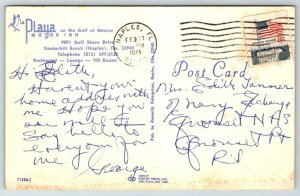 La Playa
on the Gulf of Mexico
MOTOR INN
9891 Gulf Shore Drive
Vanderbilt Beach (Naples), Fla. 33940
Telephone (813) 597-3123
Restaurant — Lounge — 100 Rooms
NAPLES, FL
FEB
1975
Post Card
Hi Edith,
Haven't your
home address with
me. Hope you
are well
Say hello to
everyone for
me
George
Mrs. Edith Tanner
% Navy Exchange
Quonset NAS
Quonset Pt
R I
71458-C